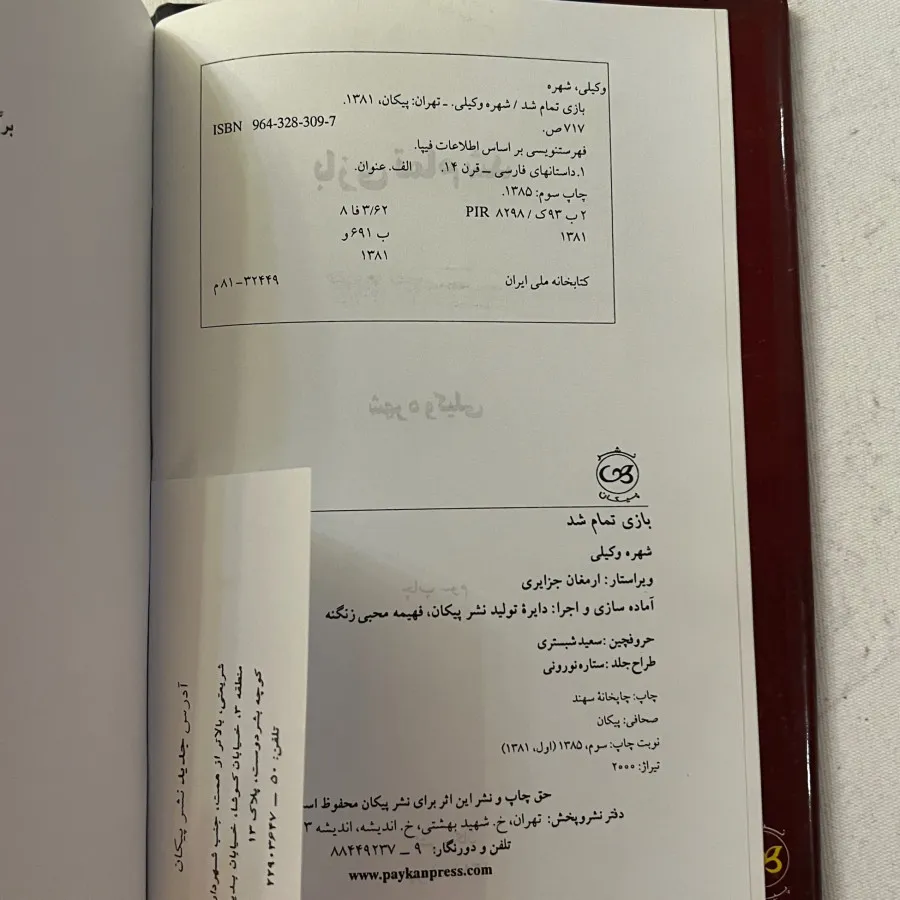 وکیلی، شهره
بازی تمام شد / شهره وکیلی. ــ تهران: پیکان، ۱۳۸۱.
۷۱۷ ص.
ISBN 964-328-309-7
فهرستنویسی بر اساس اطلاعات فیپا.
۱.داستانهای فارسی ــ قرن ۱۴. الف. عنوان.
چاپ سوم: ۱۳۸۵.
۲ ب ۹۳ ک / ۸۲۹۸ PIR ۳/۶۲ فا ۸
۱۳۸۱ ب ۶۹۱ و
۱۳۸۱
کتابخانه ملی ایران ۳۲۴۴۹-۸۱ م
پیکان
بازی تمام شد
شهره وکیلی
ویراستار: ارمغان جزایری
آماده سازی و اجرا: دایرهٔ تولید نشر پیکان، فهیمه محبی زنگنه
حروفچین :سعید شبستری
طراح جلد :ستاره نورونی
چاپ: چاپخانهٔ سهند
صحافی: پیکان
نوبت چاپ: سوم، ۱۳۸۵ (اول، ۱۳۸۱)
تیراژ: ۲۰۰۰
حق چاپ و نشر این اثر برای نشر پیکان محفوظ اس
دفتر نشر و پخش: تهران، خ. شهید بهشتی، خ. اندیشه، اندیشه ۳
تلفن و دورنگار: ۹ ــ ۸۸۴۴۹۲۳۷
www.paykanpress.com
آدرس جدید نشر پیکان
شریعتی، بالاتر از همت، جنب شهردار
منطقه ۳، خیابان کوشا، خیابان
کوچه بشردوست، پلاک ۱۳
تلفن: ۵۰ ــ ۲۲۹۰۳۶۴۷